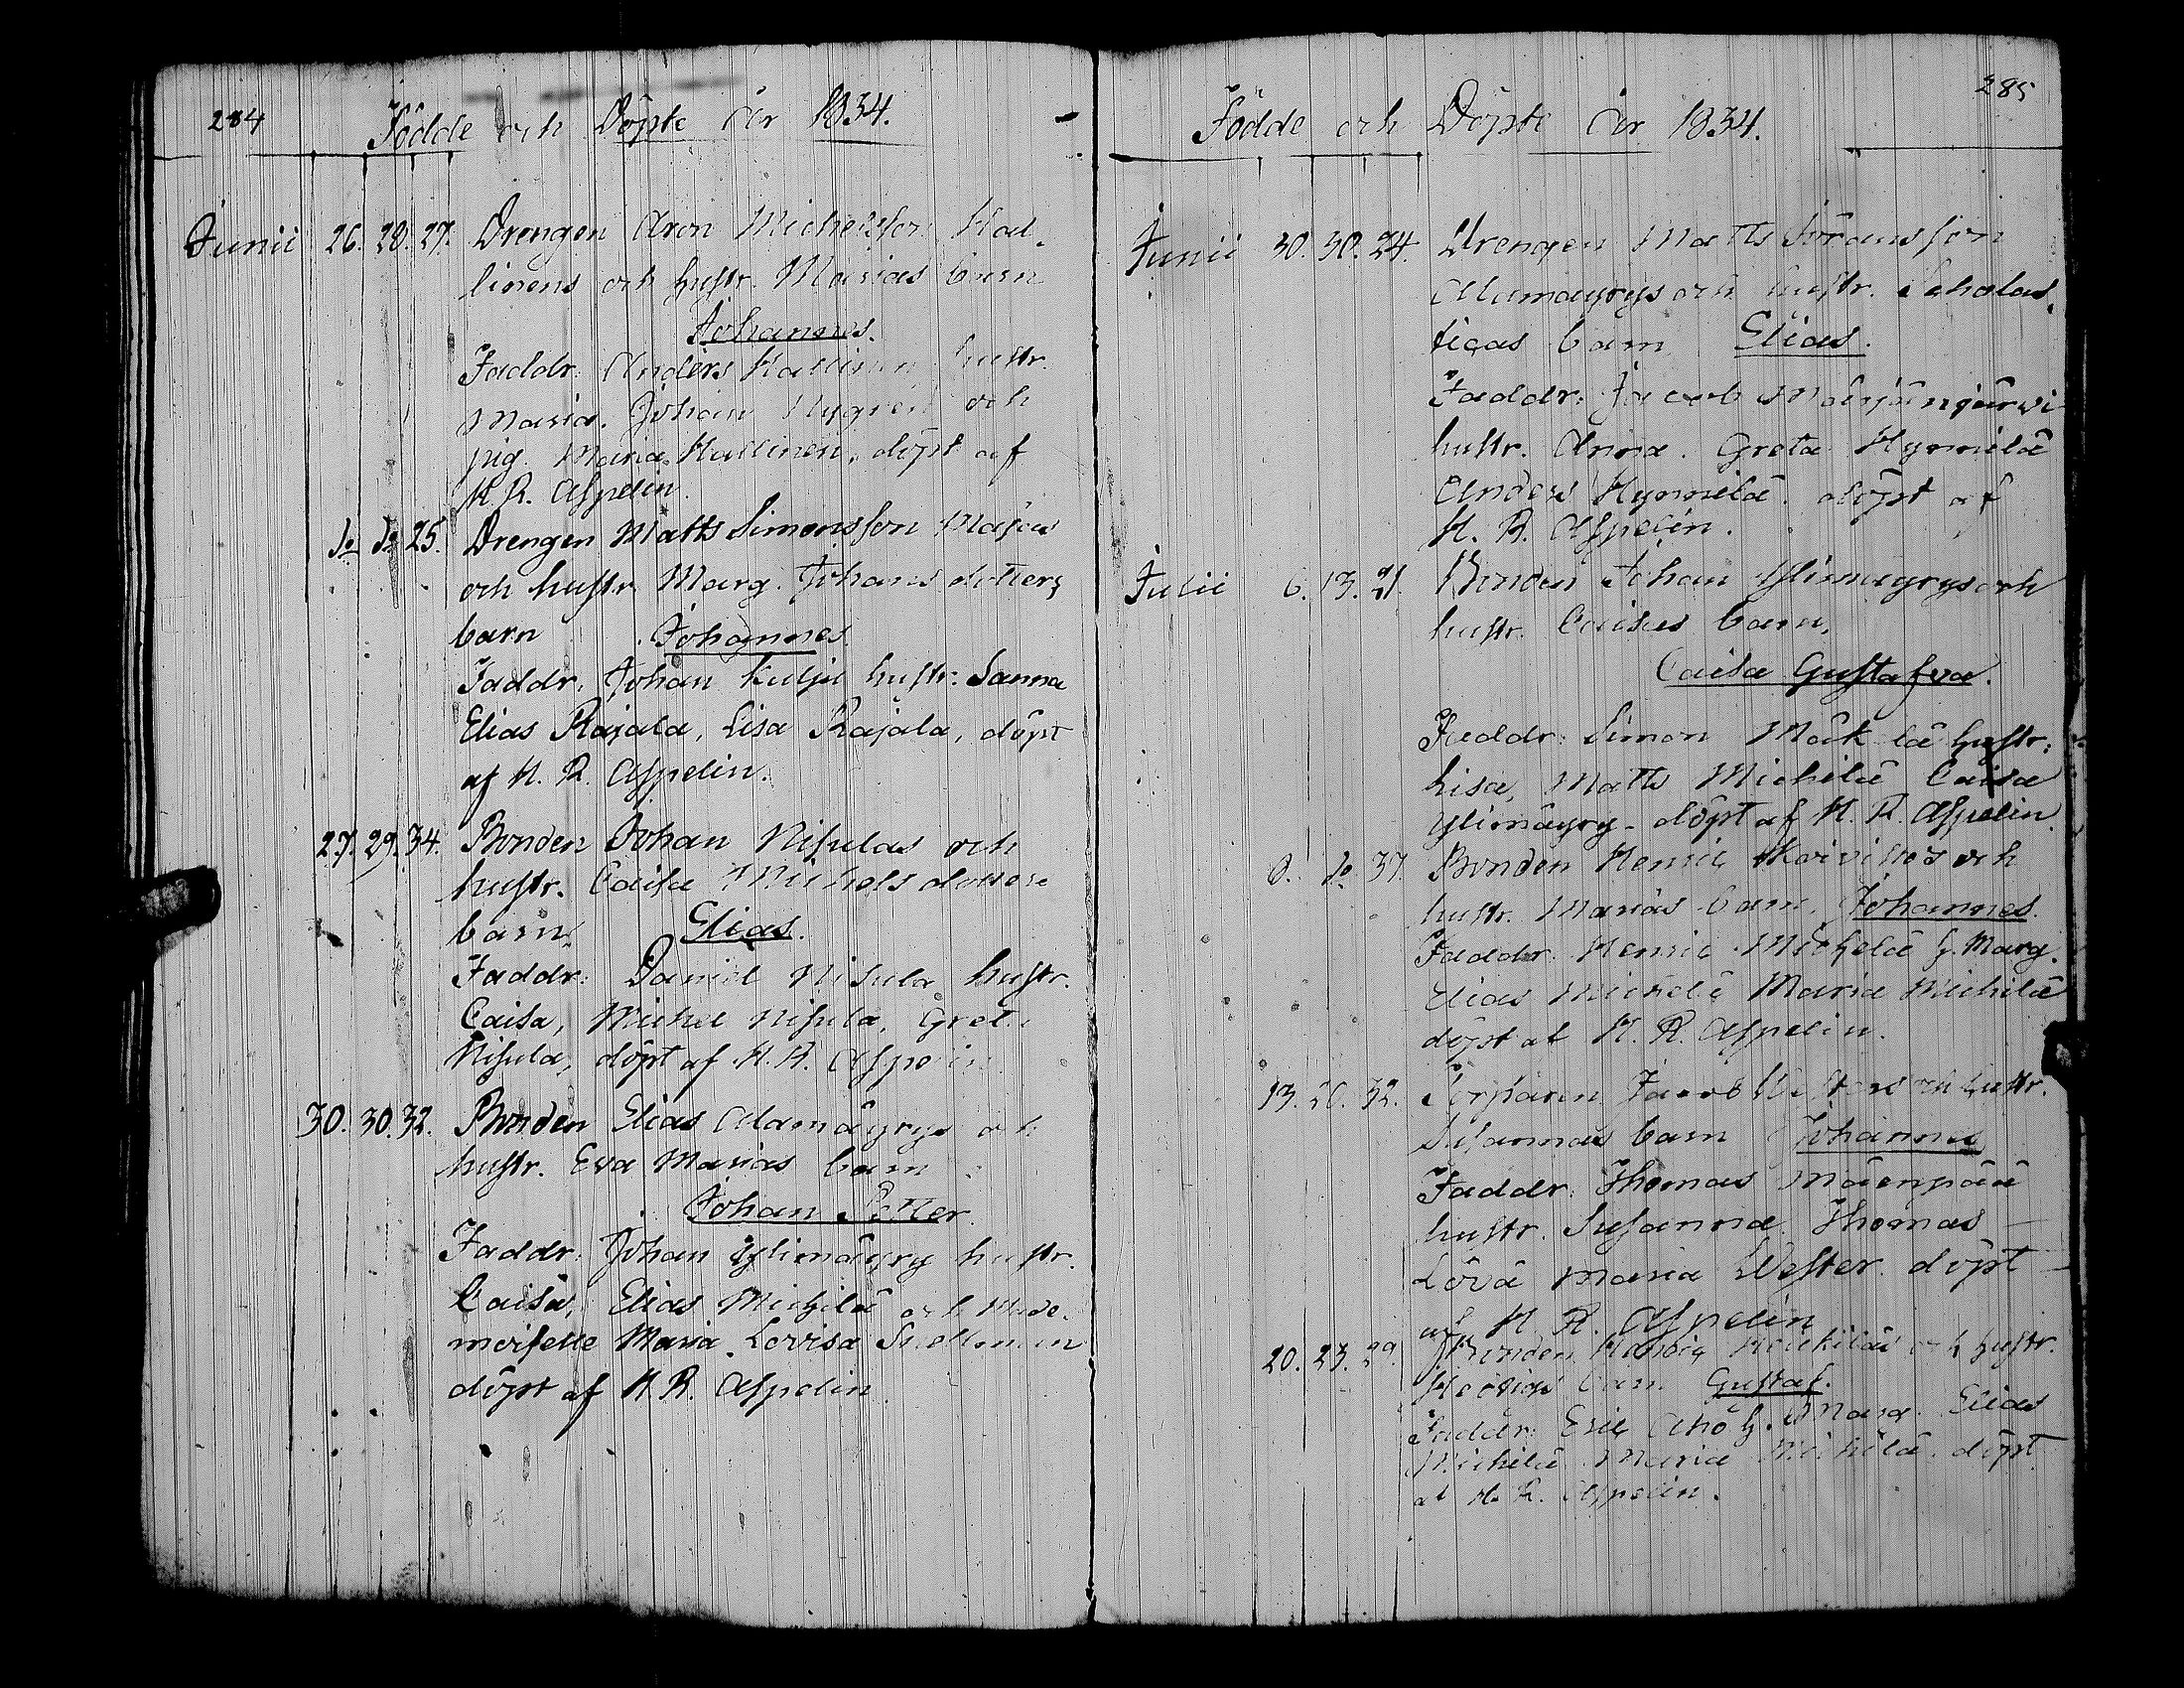 284
Födde och Döpte År 1834.
Junii 26. 28. 27. Drengen Aron Michelsson Kal-
linens och hustr. Marias barn
Johannes.
Faddr: Anders Kallinen, hustr.
Maria. Johan Nygren och
pig. Maria Kallinen, döpt af
H. R. Aspelin.
do do 25. Drengen Matts Simonsson
och hustr. Marg. Johansdotters
barn Johannes.
Faddr. Johan hustr: Sanna
Elias Rajala, Lisa Rajala, döpt
af H. R. Aspelin.
27. 29. 34. Bonden Johan Nisulas och
hustr. Caisa Michelsdotters
barn Elias.
Faddr: Daniel Nisula hustr.
Caisa, Michel Nisula, Greta
Nisula, döpt af H. R. Aspelin
30. 30. 32. Bonden Elias Alamäyrys och
hustr. Eva Marias barn
Johan Petter.
Faddr: Johan Ylimäyry hustr.
Caisa, Elias Michilä och Made-
moiselle Maria Lovisa Snellman
döpt af H. R. Aspelin
285
Födde och Döpte År 1834.
Junii 30. 30. 24. Drengen Matts Göransson
Alamäyrys och hustr. Scholas-
ticas barn Elias.
Faddr: Jacob
hustr. Anna. Greta Hynnilä
Anders Hynnilä. döpt af
H. R. Aspelin.
Julii 6. 13. 21. Bonden Johan Ylimäyrys och
hustr. Caisas barn,
Caisa Gustafva.
Faddr: Simon Mäkelä hustr:
Lisa, Matts Michilä Caisa
Ylimäyry - döpt af H. R. Aspelin.
do 37. Bonden Henric Koivistos och
hustr. Marias barn, Johannes.
Faddr: Henric Michelä h. Marg.
Elias Michelä Maria Michilä
döpt af H. R. Aspelin.
13. 20. 32. Torparen Jacob Westers och hustr.
Susannas barn Johannes
Faddr: Thomas Mäenpää
hustr. Susanna Thomas
Lövä Maria Wester. döpt
af H. R. Aspelin
20. 23. 29. Bonden Henric Heikiläs och hustr.
Hedvigs barn Gustaf.
Faddr: Eric Aho h. Maria Elias
Michilä Maria Michilä döpt
af H. R. Aspelin.